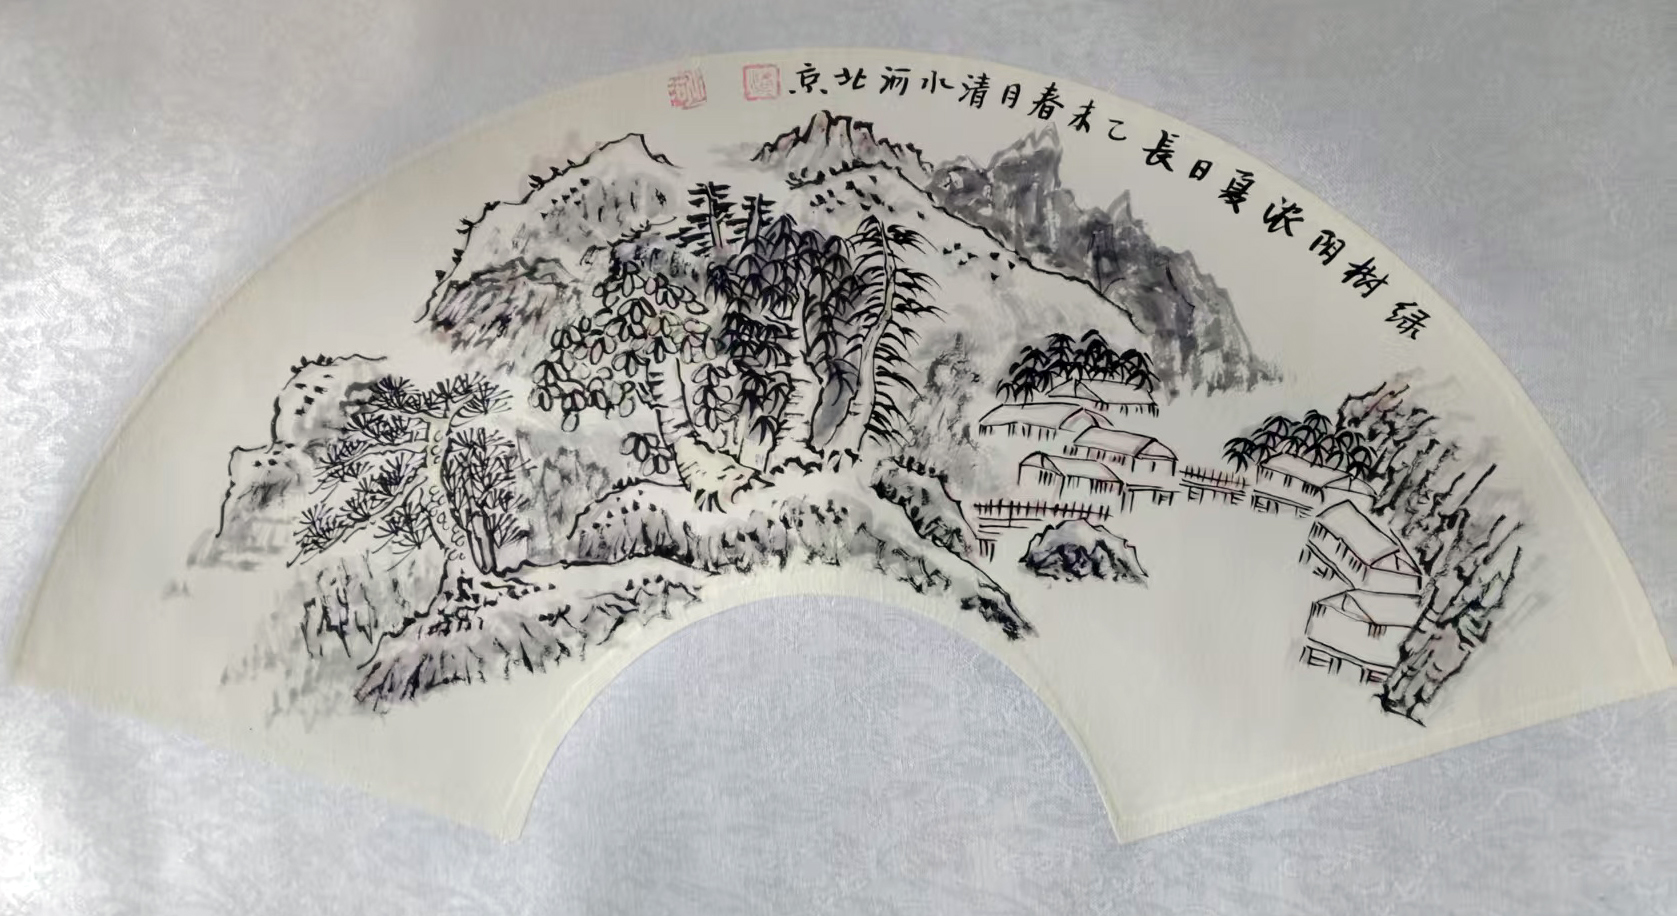 绿树阴浓夏日長乙未春月清水河北京